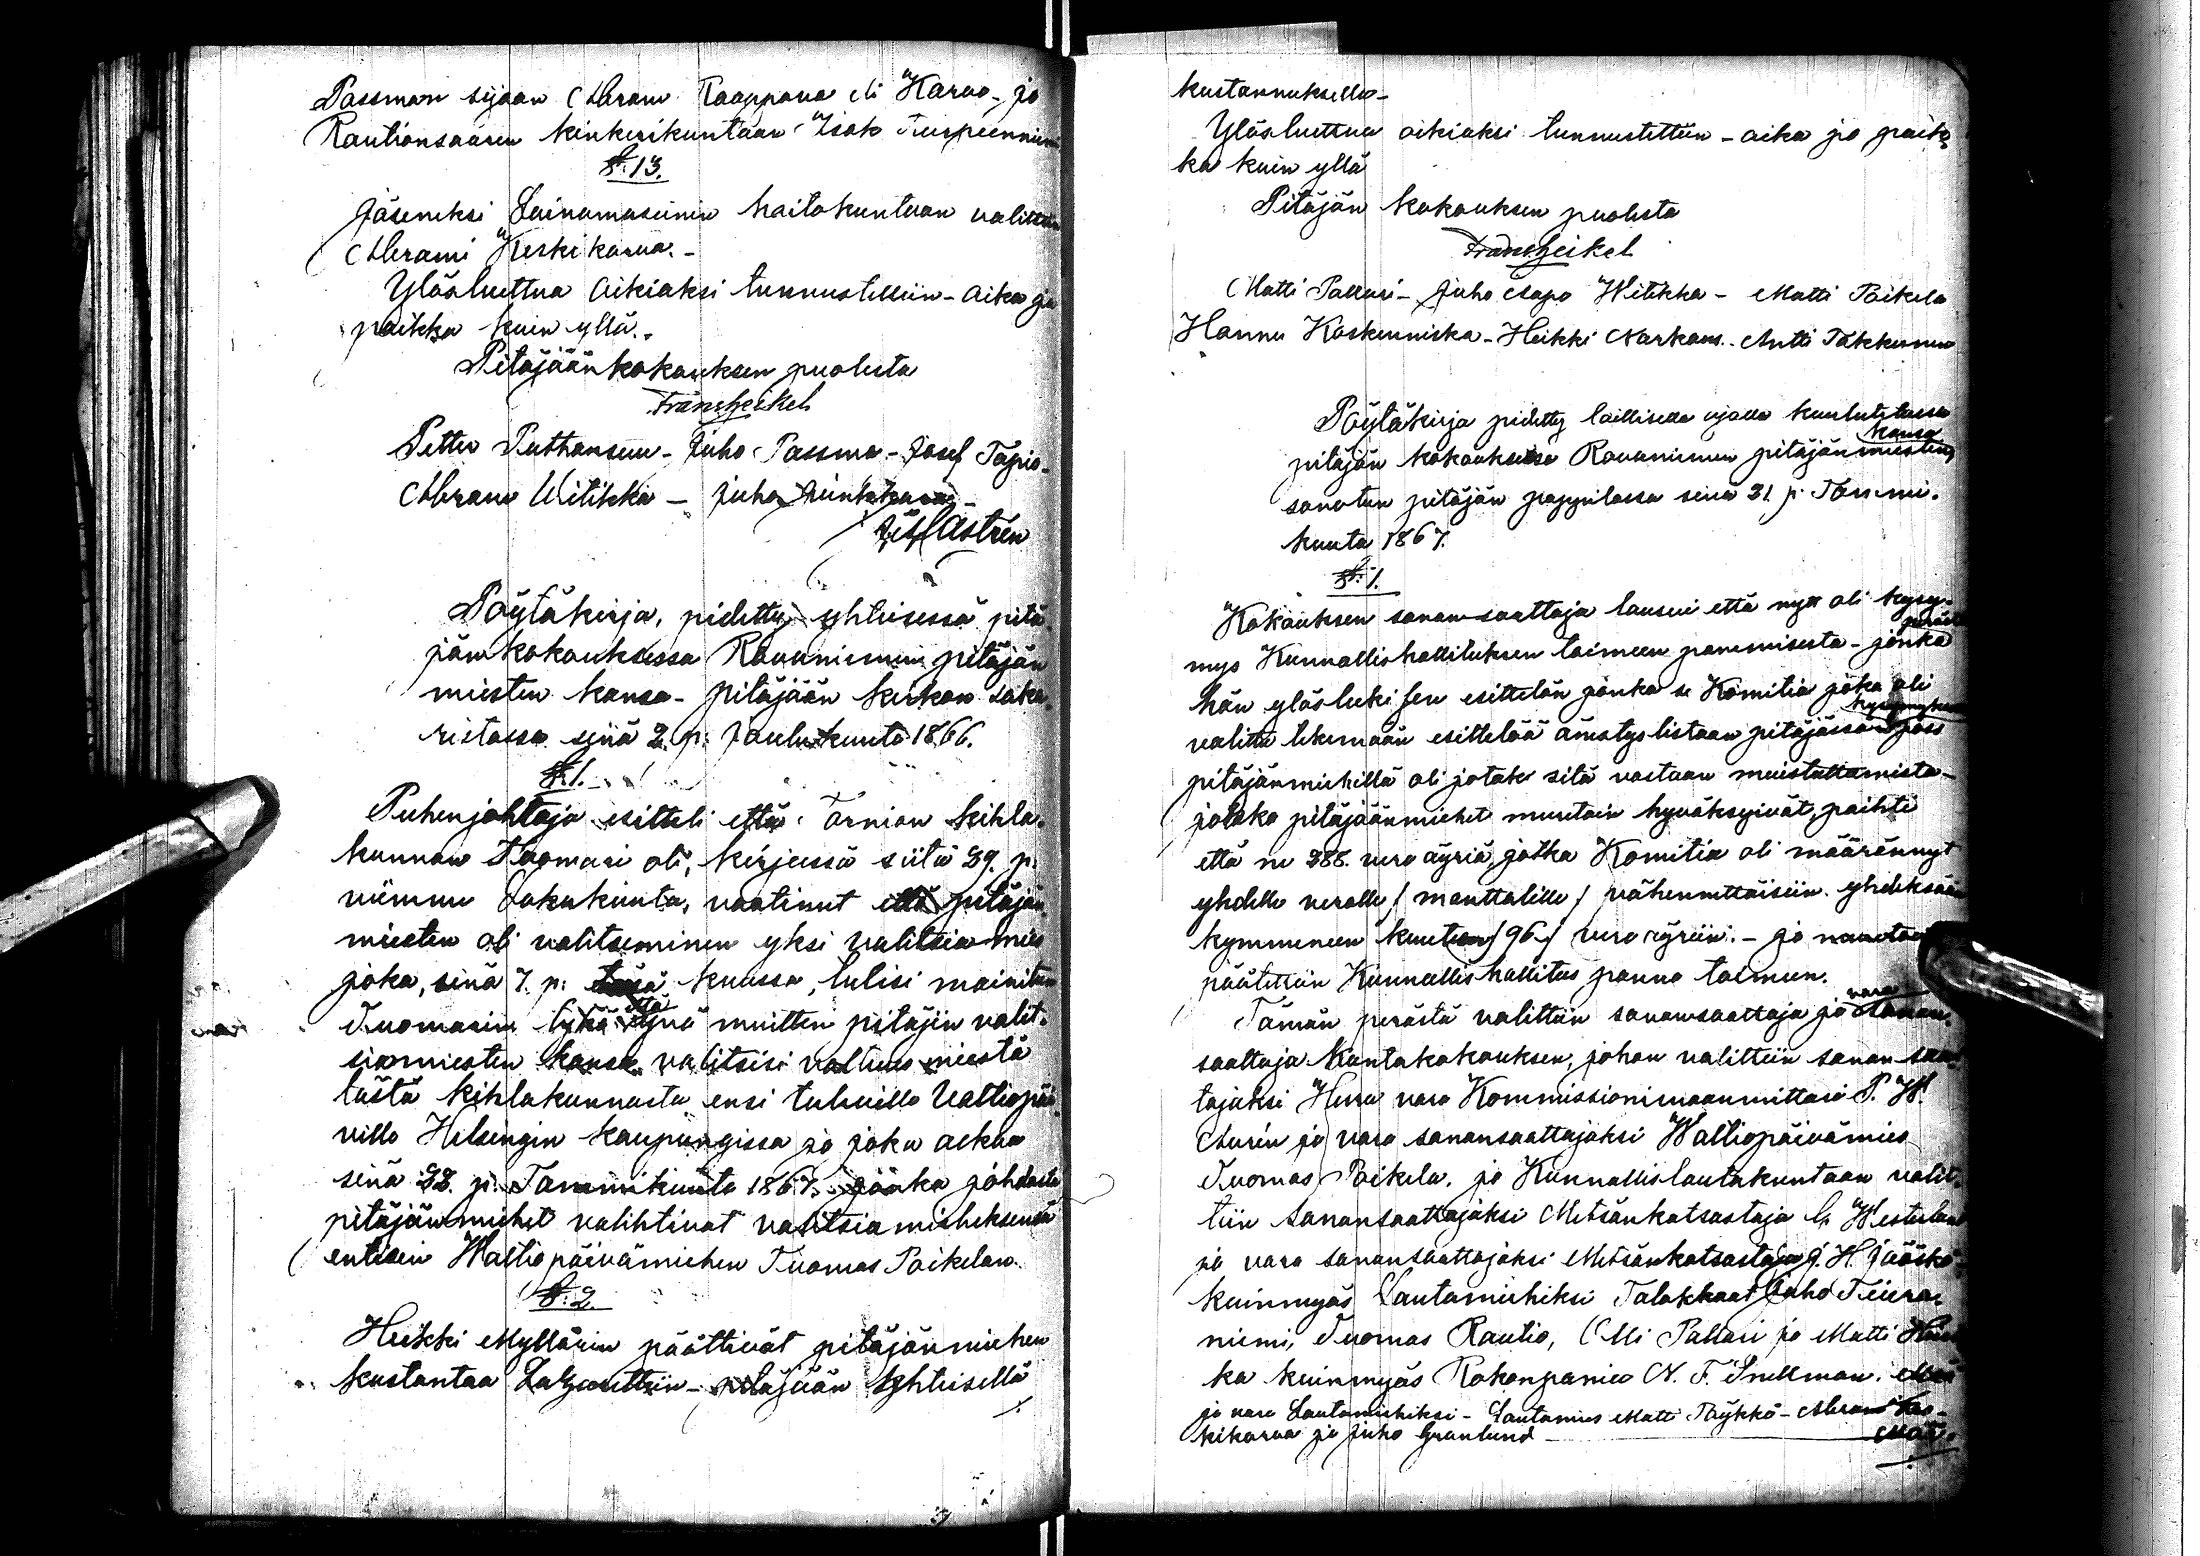 Passman sijaan Abram Kaappana eli Karva - ja
Rautionsaaren kinkerikuntaan Isak Turpeeninen
§. 13.
Jäseneksi Lainamasiinin hoitokuntaan valittiin
Abrami Keskikarva. -
Ylösluettua oikiaksi tunnustettiin - aika ja
paikka kuin yllä. -
Pitäjäänkokouksen puolesta
Frans Heikel
Petter Puthansuu - Juho Passma - Josef Tapio -
Abram Witikka - Juho
Castrén
Pöytäkirja, pidetty yhteisessä pitä
jäm kokouksessa Rovaniemen pitäjän
miesten kansa - pitäjään kirkon saka
ristassa sinä 2. p: Joulukuuta 1866.
§. 1.
Puhenjohtaja esitteli että Tornion kihla-
kunnan Tuomari oli, kirjassa siitä 29. p.
viimme Lokakuuta, vaatinut että pitäjän
miesten oli valitseminen yksi valitsia mies
joka, sinä 7. p: tässä kuussa, tulisi mainitun
Tuomarin tykö että muitten pitäjin valit-
siamiesten kansa valitsisi valtuus miestä
tästä kihlakunnasta ensi tulevilla Valtiopäi
villa Helsingin kaupungissa ja joka alkaa
sinä 22. p. Tammikuuta 1867. jonka johdosta
pitäjänmiehet valihtivat valitsiamieheksensä
entisen Waltiopäivämiehen Tuomas Poikelan.
§. 2.
Heikki Myllärin päättivät pitäjänmiehen
kustantaa Lazarettiin - pitäjään yhteisellä
kustannuksella -
Ylösluettua oikiaksi tunnustettiin - aika ja paik
ka kuin yllä
Pitäjän kokouksen puolesta
Frans Heikel
Matti Pallari - Juho Aapo Witikka - Matti Poikela
Hannu Koskenniska - Heikki Narkaus - Antti Takkunen
Pöytäkirja pidetty laillisella ajalla kuulutetussa
kansa
pitäjän kokouksessa Rovaniemen pitäjän miesten
sanotun pitäjän pappilassa sinä 21. p. Tammi-
kuuta 1867.
§. 1.
Kokouksen sanansaattaja lausui että nyt oli kysy-
perästä
mys Kunnallishallituksen toimeen panemisesta - jonka
hän ylösluki sen esittelön jonka se Komitia joka oli
kysymyksen
valittu tekemään esittelöä äänestys listaan pitäjässä joss
pitäjänmiehillä oli jotaki sitä vastaan muistuttamista -
jotaka pitäjäänmiehet muutoin hyväksyivät, paihti
että ne 288. vero äyriä, jotka Komitia oli määrännyt
yhdelle verolle / manttalille / vähennettäisiin yhdeksään
kymmeneen kuuteen / 96. / vero äyriin. - ja
päätettiin Kunnallishallitus panna toimeen.
vara
Tämän perästä valittiin sanansaattaja ja sanan-
saattaja Kuntakokouksen, johon valittiin sanan saat
tajaksi Herra vara Kommissionimaanmittari P. W.
Aurén ja vara sanansaattajaksi Waltiopäivämies
Tuomas Poikela, ja Kunnallislautakuntaan valit-
tiin sanansaattajaksi Metsänkatsastaja G. Westerlund
ja vara sanansaattajaksi Metsänkatsastaja J. H. Jääskö
kuinmyös Lautamiehiksi Talokkaat Juho Teeria-
niemi, Tuomas Rautio, Olli Pallari ja Matti
ka kuinmyös Kokonpanies N. F. Snellman.
ja vara Lautamiehiksi - Lautamies Matti Pöykkö - Abram Kes-
kikarva ja Juho Granlund